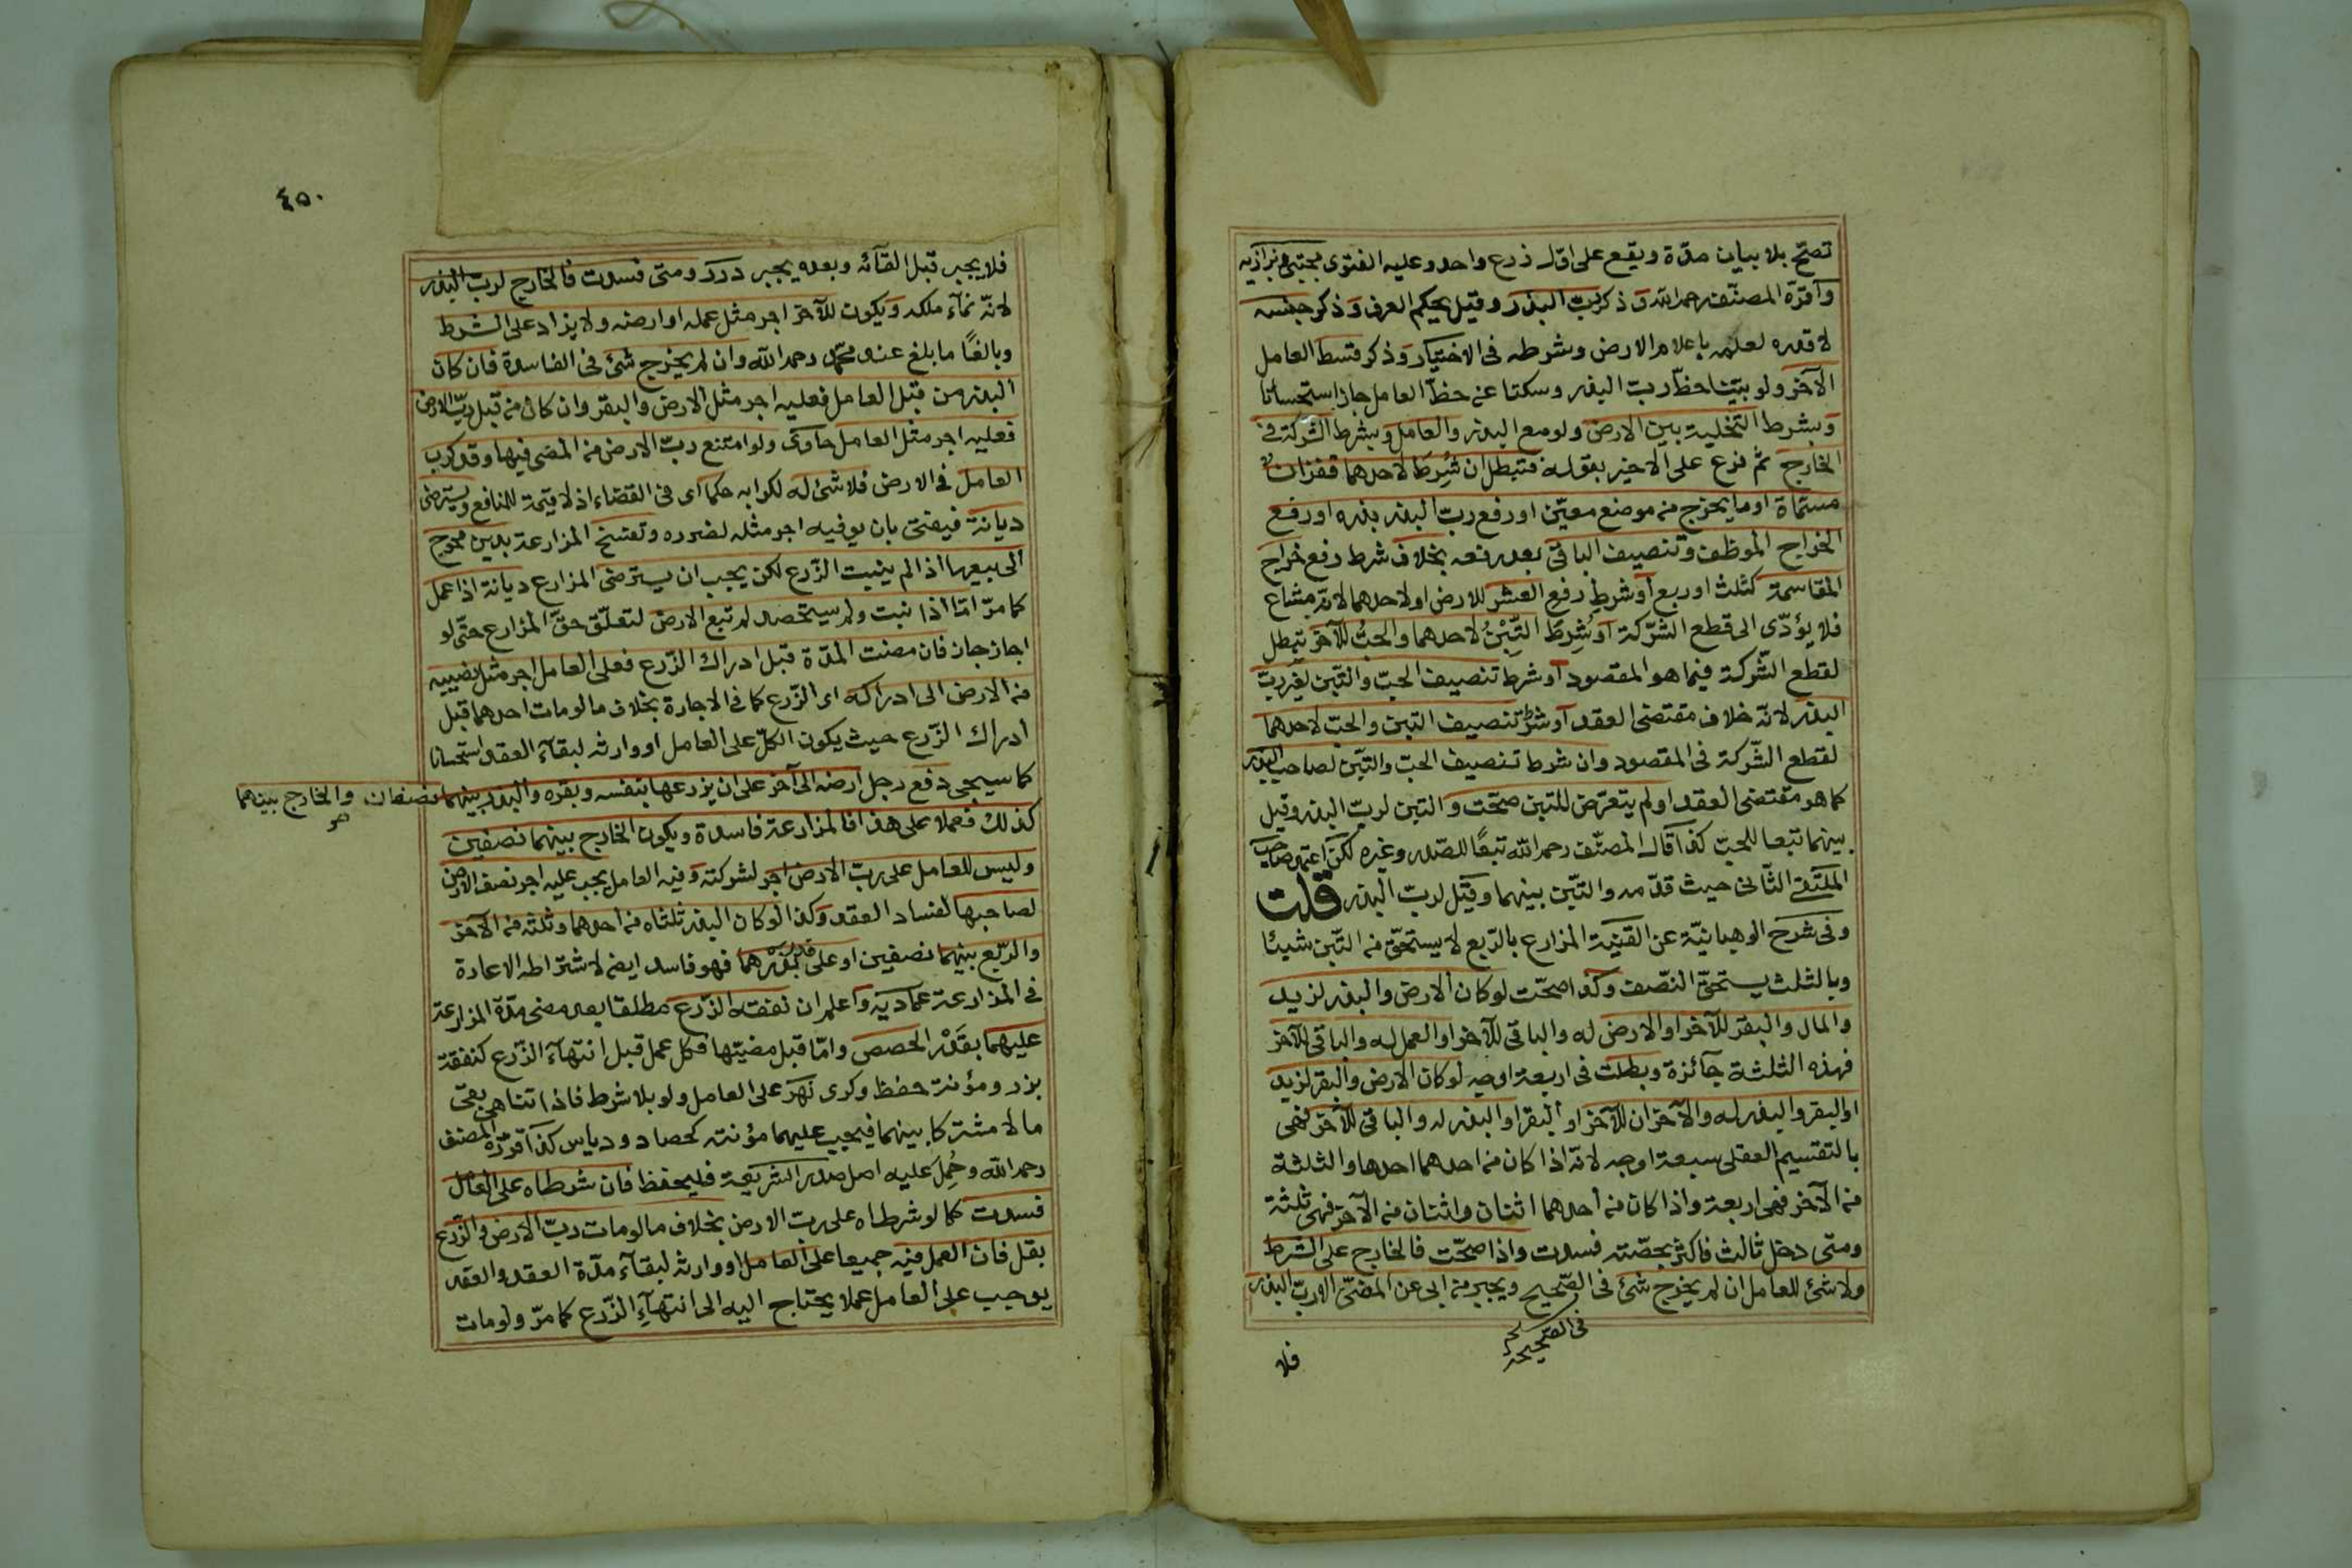 تصحّ بلا بيان مدّة ويقع على اوّل زرع واحد وعليه الفتوى مجتبى وبزازيه
واقرّه المصنّف رحمه الله وذكر ربّ البذر وقيل يحكم العرف وذكر جنسه
لا قدره لعلمه باعلام الارض وشرطه فى الاختيار وذكر قسط العامل
الآخر ولو بيّنا حظّ ربّ البذر وسكتا عن حظّ العامل جاز استحسانا
وبشرط التخلية بين الارض ولو مع البذر والعامل وبشرط الشركة فى
الخارج ثمّ فرع على الاخير بقوله فتبطل ان شُرِطَ لاحدهما قفزان
مسمّاة او ما يخرج من موضع معيّن او رفع ربّ البذر بذره او رفع
الخراج الموظف وتنصيف الباقى بعد رفعه بخلاف شرط رفع خراج
المقاسمة كثلث او ربع او شرط رفع العشر للارض او لاحدهما لانّه مشاع
فلا يؤدّى الى قطع الشّركة او شُرِطَ التِّبْنُ لاحدهما والحبُّ للآخر تبطل
لقطع الشّركة فيما هو المقصود او شرط تنصيف الحبّ والتّبن لغير ربّ
البذر لانّه خلاف مقتضى العقد او شرط تنصيف التبن والحبّ لاحدهما
لقطع الشّركة فى المقصود وان شرط تنصيف الحبّ والتّبن لصاحب البذر
كما هو مقتضى العقد او لم يتعرّض للتبن صحّت والتبن لربّ البذر وقيل
بينهما تبعا للحبّ كذا قال المصنّف رحمه الله تبعًا للصّدر وغيره لكن اعتمد صاحب
الملتقى الثّانى حيث قدّمه والتّبن بينهما وقيل لربّ البذر قلت
وفى شرح الوهبانيّة عن القنية المزارع بالرّبع لا يستحقّ من التّبن شيئا
وبالثلث يستحقّ النّصف وكذا صحّت لو كان الارض والبذر لزيد
والمال والبقر للآخر او الارض له والباقى للآخر او العمل له والباقى للآخر
فهذه الثلثة جائزة وبطلت فى اربعة اوجه لو كان الارض والبقر لزيد
او البقر والبذر له والآخران للآخر او البقر او البذر له والباقى للآخر فهى
بالتقسيم العقلى سبعة اوجه لانّه اذا كان من احدهما احدها والثلثة
من الآخر فهى اربعة واذا كان من احدهما اثنان واثنان من الآخر فهى ثلثة
ومتى دخل ثالث فاكثر بحصّته فسدت واذا صحّت فالخارج على الشرط
ولا شئ للعامل ان لم يخرج شئ فى الصّحيح ويجبر من ابى عن المضىّ الا ربّ البذر
فى الصّحيحة
فلا
٤٥٠
فلا يجبر قبل القآئه وبعده يجبر درر ومتى فسدت فالخارج لربّ البذر
لانّه نمآء ملكه ويكون للآخر اجر مثل عمله او ارضه ولا يزاد على الشرط
وبالغًا ما بلغ عند محمّد رحمه الله وان لم يخرج شئ فى الفاسدة فان كان
البذر من قبل العامل فعليه اجر مثل الارض والبقر وان كان من قبل ربّ الارض
فعليه اجر مثل العامل حاوى ولو امتنع ربّ الارض من المضى فيها وقد كرب
العامل فى الارض فلا شئ له لكرابه حكما اى فى القضاء اذ لا قيمة للمنافع ويسترضى
ديانة فيفتى بان يوفيه اجر مثله لغرره وتفسخ المزارعة بدين محوج
الى بيعها اذا لم ينبت الزّرع لكن يجب ان يسترضى المزارع ديانة اذا عمل
كما مرّ امّا اذا نبت ولم يستحصد لم تبع الارض لتعلّق حقّ المزارع حتّى لو
اجاز جاز فان مضت المدّة قبل ادراك الزّرع فعلى العامل اجر مثل نصيبه
من الارض الى ادراكه اى الزّرع كما فى الاجارة بخلاف ما لو مات احدهما قبل
ادراك الزّرع حيث يكون الكلّ على العامل او وارثه لبقآء العقد استحسانا
كما سيجى دفع رجل ارضه الى آخر على ان يزرعها بنفسه وبقره والبذر بينهما نصفان والخارج بينهما
كذلك فعملا على هذا فالمزارعة فاسدة ويكون الخارج بينهما نصفين
وليس للعامل على ربّ الارض اجر لشركته وفيه العامل يجب عليه اجر نصف الارض
لصاحبها لفساد العقد وكذا لو كان البذر ثلثاه من احدهما وثلثه من الآخر
والرّبع بينهما نصفين او على قدر بذرهما فهو فاسد ايضا لاشتراطه الاعارة
فى المزارعة عماديه واعلم ان نفقة الزّرع مطلقا بعد مضى مدّة المزارعة
عليهما بقَدْر الحصص وامّا قبل مضيّها فكل عمل قبل انتهآء الزّرع كنفقة
بزر ومؤنة حفظ وكرى نَهَر على العامل ولو بلا شرط فاذا تناهى بقى
مالا مشتركا بينهما فيجب عليهما مؤنته كحصاد ودياس كذا قرّره المصنف
رحمه الله وحُمِلَ عليه اصل صدر الشريعة فليحفظ فان شرطاه على العامل
فسدت كما لو شرطاه على ربّ الارض بخلاف ما لو مات ربّ الارض والزّرع
بقل فان العمل فيه جميعا على العامل او وارثه لبقآء مدّة العقد والعقد
يوجب على العامل عملا يحتاج اليه الى انتهآء الزّرع كما مرّ ولو مات